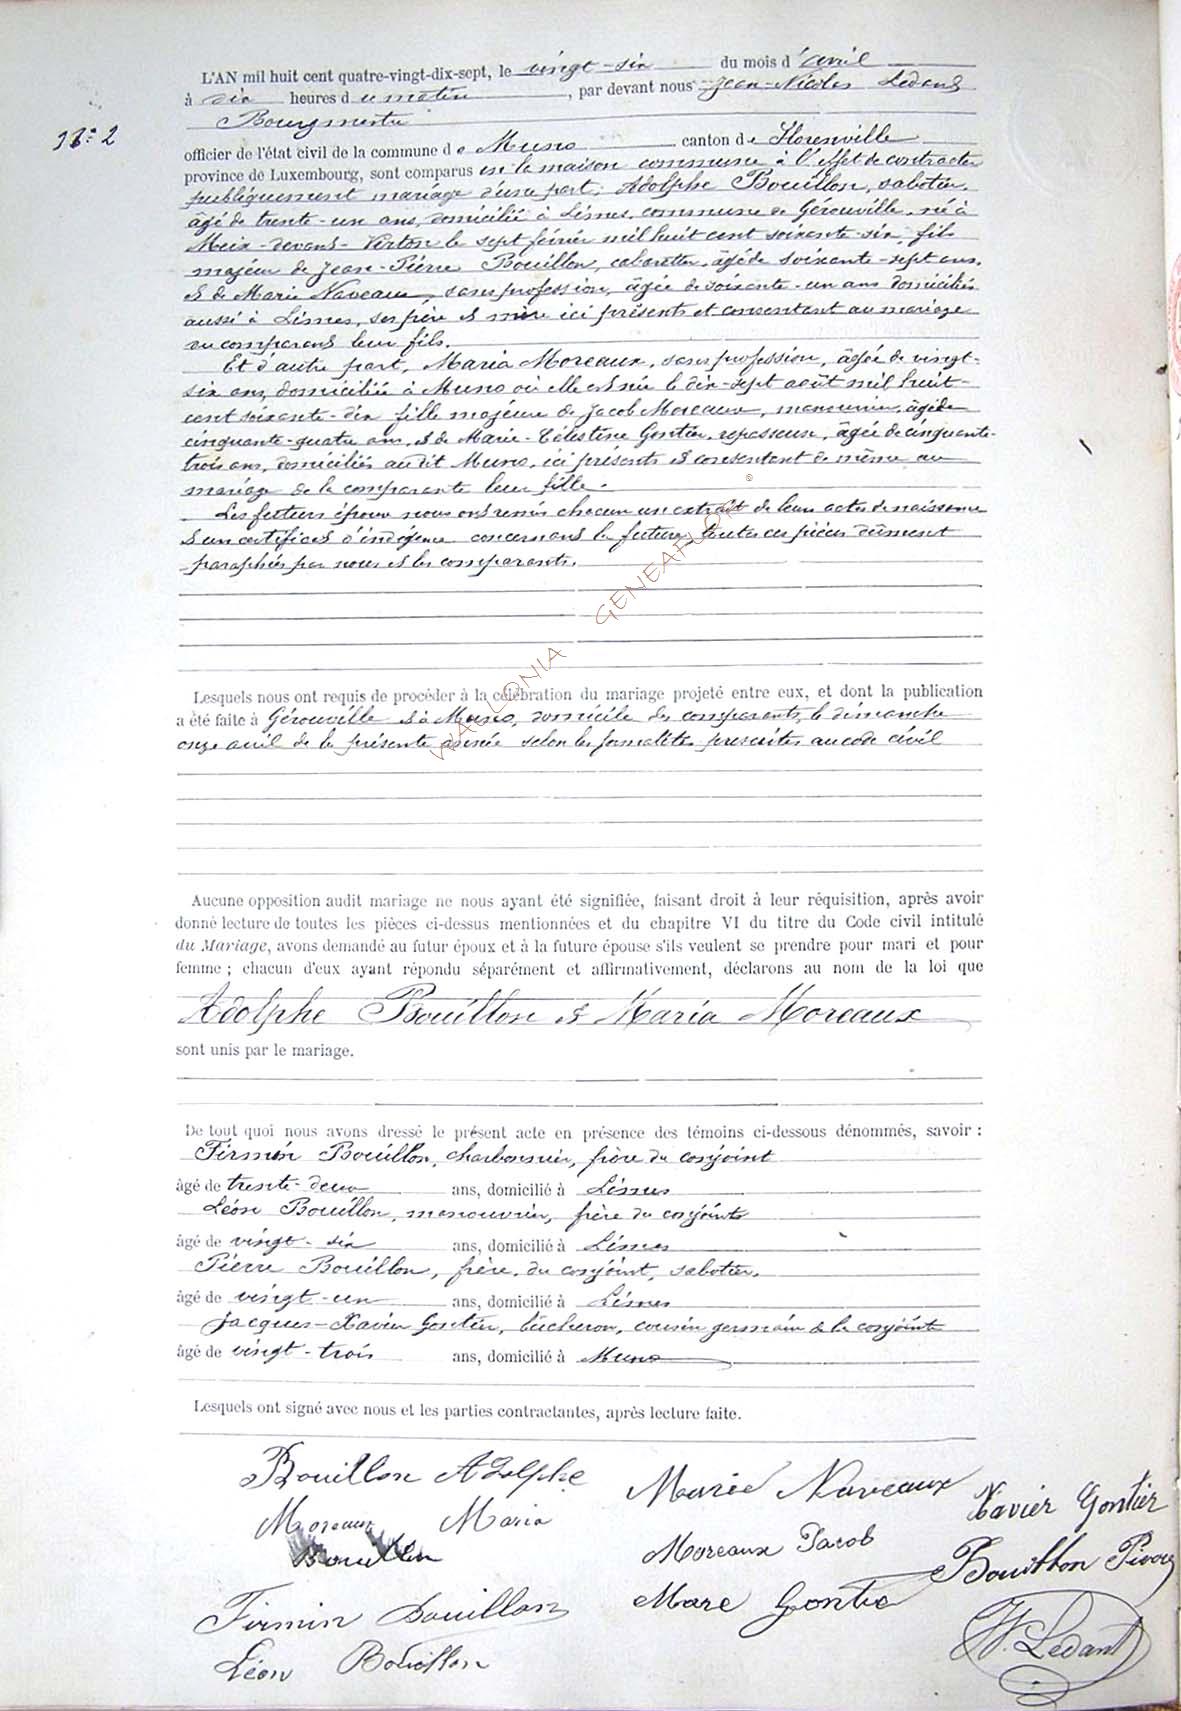 L'AN mil huit cent quatre-vingt-dix-sept, le vingt-six du mois d'avril
à dix heures du matin, par devant nous Jean-Nicolas Ledant
Bourgmestre
N° 2
officier de l'état civil de la commune de Muno canton de Florenville
province de Luxembourg, sont comparus en la maison commune à l'effet de contracter
publiquement mariage d'une part, Adolphe Bouillon, sabotier,
âgé de trente-un ans, domicilié à Limes, commune de Gérouville, né à
Meix-devant-Virton le sept février mil huit cent soixante-six, fils
majeur de Jean-Pierre Bouillon, cabaretier, âgé de soixante-sept ans,
& de Marie Naveaux, sans profession, âgée de soixante-un ans domiciliés
aussi à Limes, ses père & mère ici présents et consentant au mariage
du comparant leur fils.
Et d'autre part, Maria Moreaux, sans profession, âgée de vingt-
six ans, domiciliée à Muno où elle est née le dix-sept août mil huit-
cent soixante-dix fille majeure de Jacob Moreaux, manouvrier, âgé de
cinquante-quatre ans, & de Marie-Célestine Gontier, repasseuse, âgée de cinquante-
trois ans, domiciliés audit Muno, ici présents & consentant de même au
mariage de la comparante leur fille.
Les futurs époux nous ont remis chacun un extrait de leurs actes de naissance
& un certificat d'indigence concernant le futur, toutes ces pièces dûment
paraphées par nous et les comparants.
WALLONIA GENEAFLOR ©
Lesquels nous ont requis de procéder à la célébration du mariage projeté entre eux, et dont la publication
a été faite à Gérouville & à Muno, domicile des comparants, le dimanche
onze avril de la présente année selon les formalités prescrites au code civil
Aucune opposition audit mariage ne nous ayant été signifiée, faisant droit à leur réquisition, après avoir
donné lecture de toutes les pièces ci-dessus mentionnées et du chapitre VI du titre du Code civil intitulé
du Mariage, avons demandé au futur époux et à la future épouse s'ils veulent se prendre pour mari et pour
femme ; chacun d'eux ayant répondu séparément et affirmativement, déclarons au nom de la loi que
Adolphe Bouillon & Maria Moreaux
sont unis par le mariage.
De tout quoi nous avons dressé le présent acte en présence des témoins ci-dessous dénommés, savoir :
Firmin Bouillon, charbonnier, frère du conjoint
âgé de trente-deux ans, domicilié à Limes
Léon Bouillon, manouvrier, frère du conjoint
âgé de vingt-six ans, domicilié à Limes
Pierre Bouillon, frère du conjoint, sabotier,
âgé de vingt-un ans, domicilié à Limes
Jacques-Xavier Gontier, bûcheron, cousin germain de la conjointe
âgé de vingt-trois ans, domicilié à Muno
Lesquels ont signé avec nous et les parties contractantes, après lecture faite.
Bouillon Adolphe
Marie Naveaux
Xavier Gontier
Moreaux Maria
Moreaux Jacob
Bouillon
Bouillon
Mare Gontie
Firmin Bouillon
J N. Ledant
Léon Bouillon